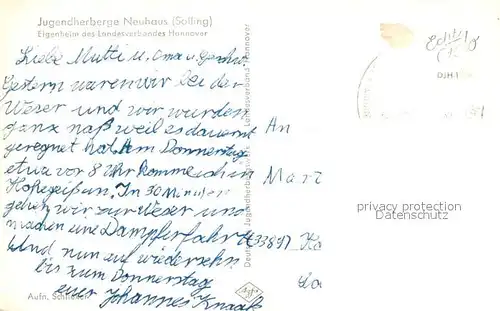 Jugendherberge Neuhaus (Solling)
Eigenheim des Landesverbandes Hannover
Liebe Mutti u. Oma u. Geschw.
Gestern waren wir bei der
Weser und wir wurden
ganz naß weil es dauernd
geregnet hat. Am Donnerstag
etwa vor 8 Uhr komme ich in
In 30 Minuten
gehen wir zur Weser und
machen eine Dampferfahrt
Und nun auf wiedersehn
bis zum Donnerstag
euer Johannes Knaak
Aufn. Schl
An
Mar
33897 Ka
privacy protection
Datenschutz
DJH
Landesverband Hannover